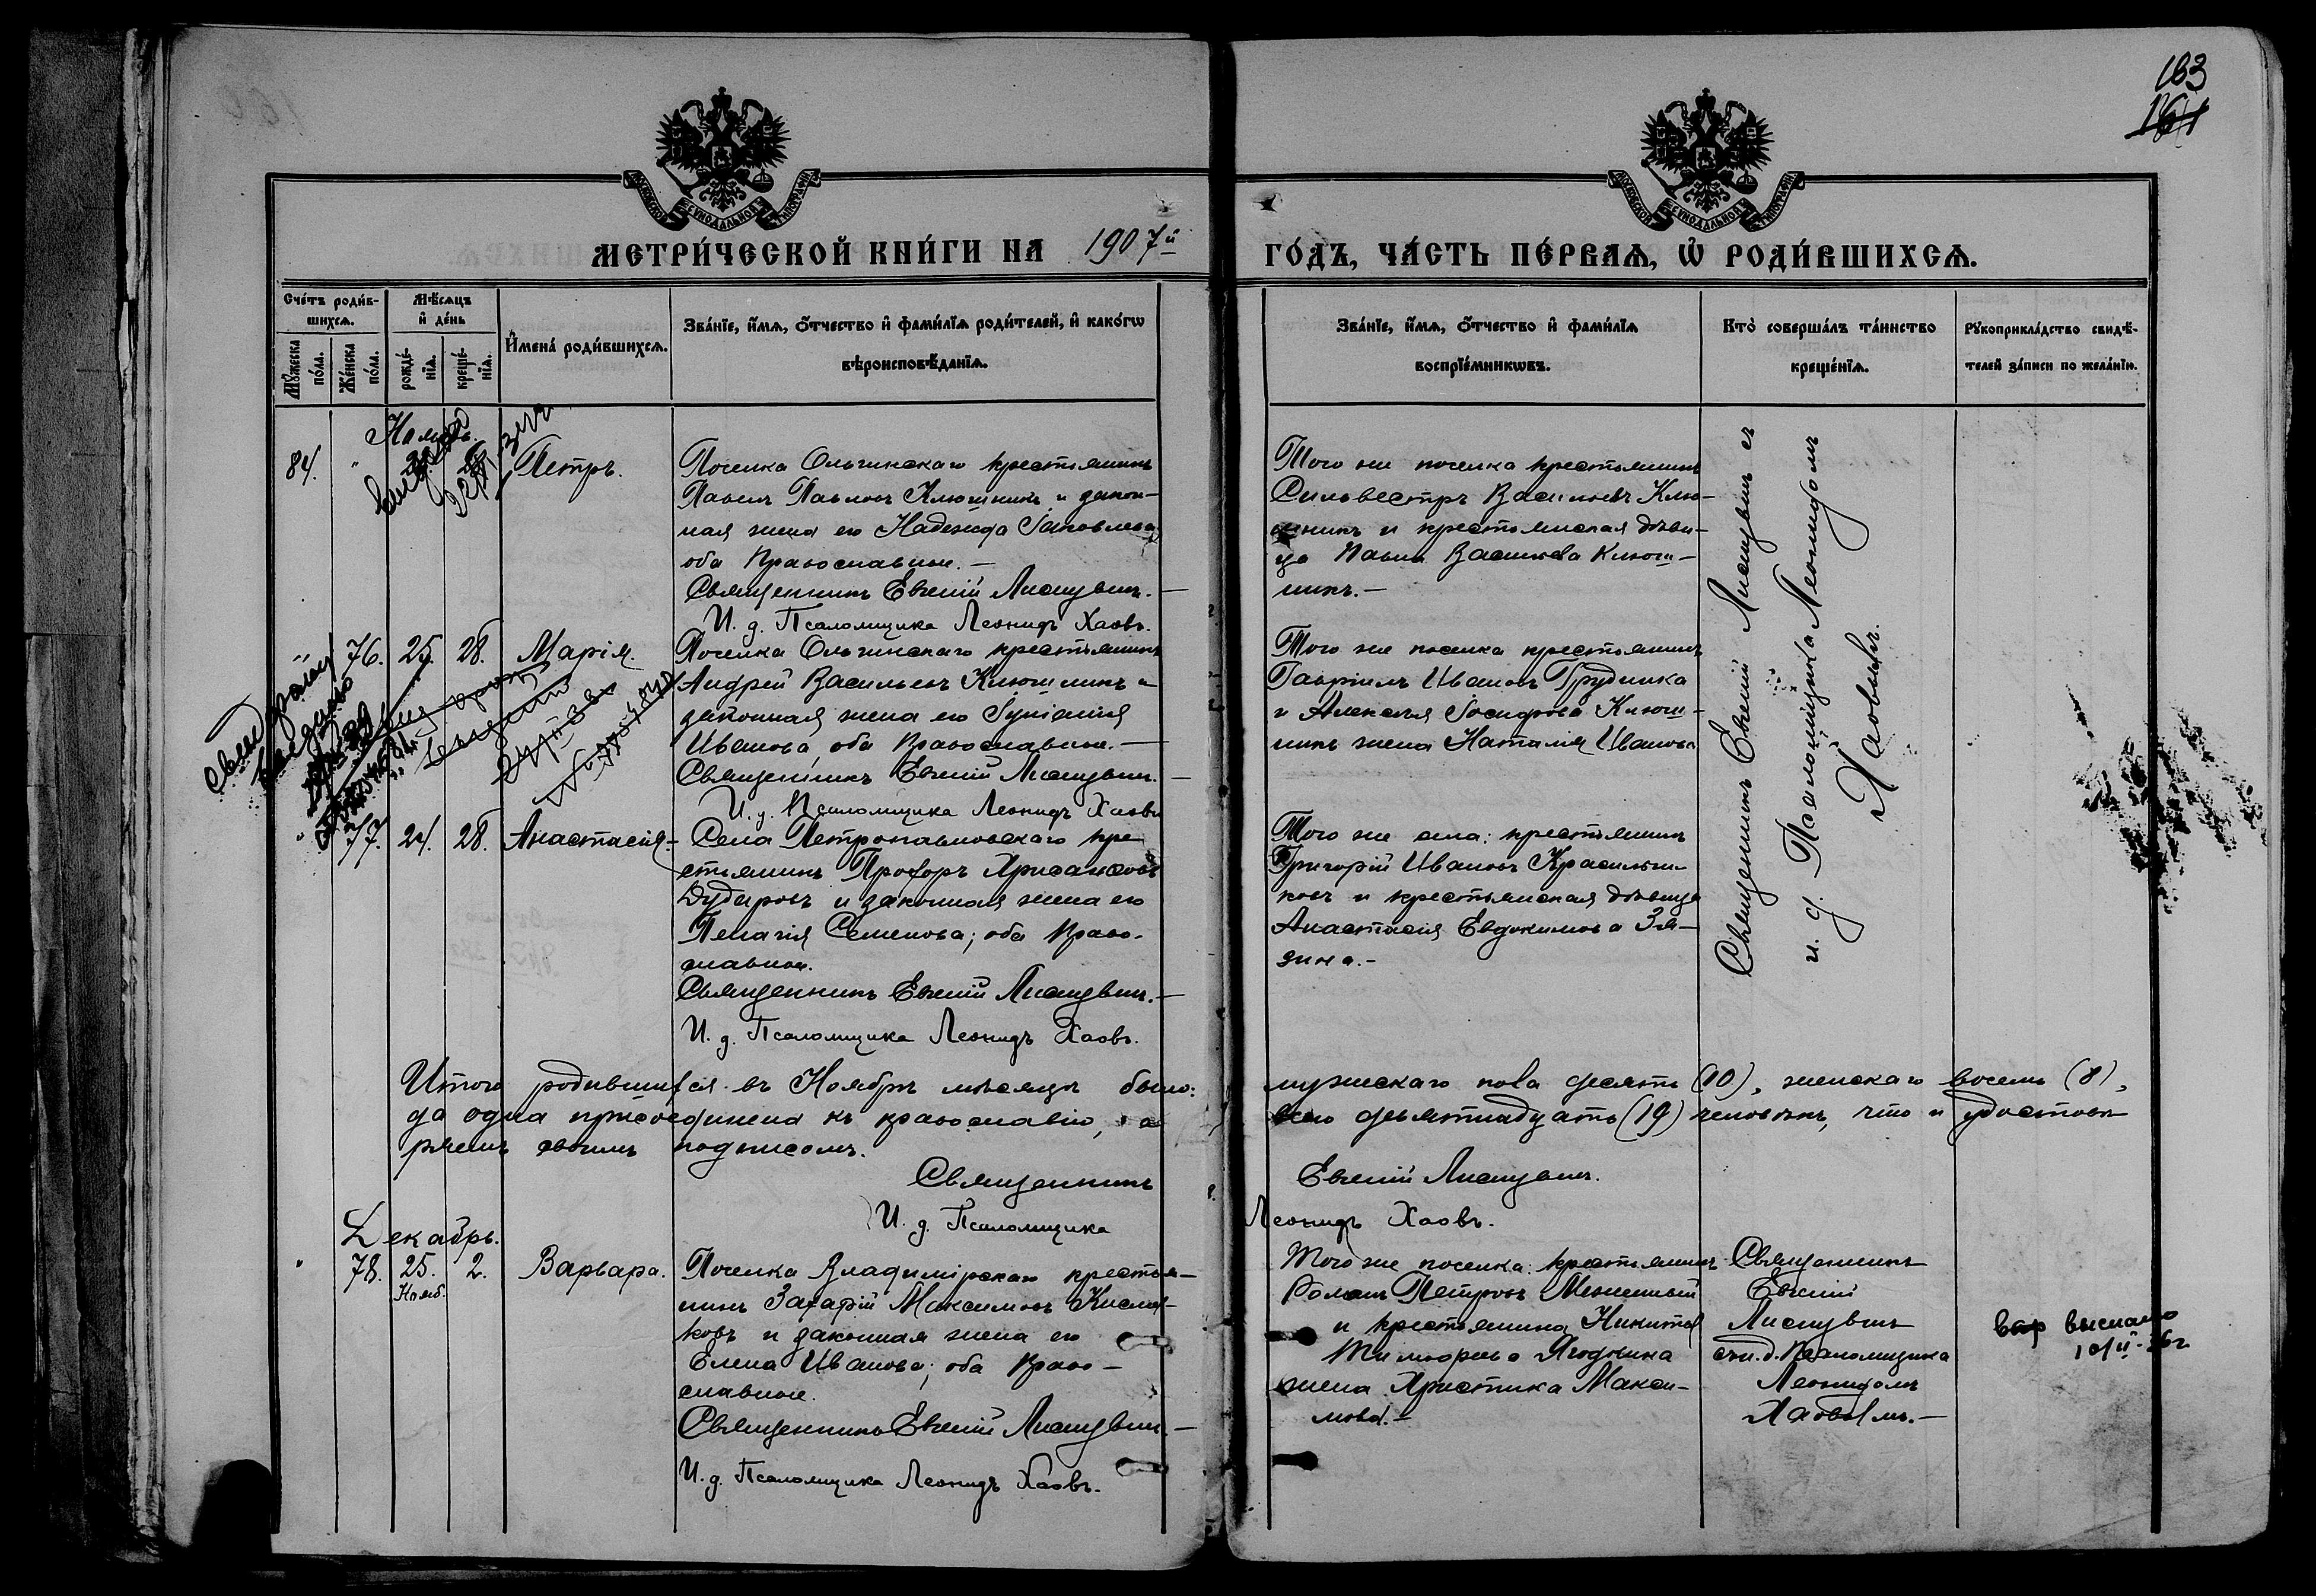 183
161
МОСКОВСКОЙ СУНОДАЛЬНОЙ ТИПОГРАФІИ
МОСКОВСКОЙ СУНОДАЛЬНОЙ ТИПОГРАФІИ
МЕТРИ́ЧЕСКОЙ КНИ́ГИ НА 1907й
ГО́ДЪ, ЧА́СТЬ ПЕ́РВАѦ, Ѡ РОДИ́ВШИХСѦ.
Сче́тъ роди́в-
шихсѧ.
Мꙋ́жеска по́ла.
Же́нска по́ла.
Мѣ́сѧцъ
и҆ де́нь
рожде́-
нїѧ.
креще́-
нїѧ.
И҆мена̀ роди́вшихсѧ.
Зва́нїе, и҆́мѧ, ѻ҆́тчество и҆ фами́лїѧ роди́телей, и҆ како́гѡ
вѣроисповѣ́данїѧ.
Зва́нїе, и҆́мѧ, ѻ҆́тчество и҆ фами́лїѧ
воспрїе́мникѡвъ.
Кто̀ соверша́лъ та́инство
креще́нїѧ.
Рꙋкоприкла́дство свидѣ́-
телей за́писи по жела́нїю.
Ноябрь.
84. " 28. Петръ.
Поселка Ольгинскаго крестьянинъ
Павелъ Павловъ Клюшникъ и закон-
ная жена его Надежда Іаковлева
оба Православные. —
Священникъ Евгеній Лисицынъ. —
И. д. Псаломщика Леонидъ Хаовъ.
Того же поселка крестьянинъ
Сильвестръ Васильевъ Клю-
шникъ и крестьянская дѣви-
ца Васильева Клюш-
никъ. —
Священникъ Евгеній Лисицынъ съ
и. д. Псаломщика Леонидомъ
Хаовымъ.
" 76. 25. 28. Марія.
Поселка Ольгинскаго крестьянинъ
Андрей Васильевъ Клюшникъ и
законная жена его
Иванова, оба Православные. —
Священникъ Евгеній Лисицынъ. —
И. д. Псаломщика Леонидъ Хаовъ
Того же поселка крестьянинъ
Гавріилъ Ивановъ Грудинка
и Алексѣя Іосифова Клюш-
никъ жена Наталія Иванова
" 77. 24. 28. Анастасія.
Села Петропавловскаго кре
стьянинъ Прохоръ Хрисанфовъ
Дударовъ и законная жена его
Пелагія Семенова; оба Право-
славные.
Священникъ Евгеній Лисицынъ. —
И. д. Псаломщика Леонидъ Хаовъ.
Того же села: крестьянинъ
Григорій Ивановъ Красильни-
ковъ и крестьянская дѣвица
Анастасія Евдокимова Зя-
зина. -
Итого родившихся въ Ноябрѣ мѣсяцѣ было: мужескаго пола десять (10), женскаго восемь (8),
да одна присоединена къ православію, а всего девятнадцать (19) человѣкъ, что и удостовѣ-
ряемъ своимъ подписомъ.
Священникъ Евгеній Лисицынъ.
И. д. Псаломщика Леонидъ Хаовъ.
Декабрь.
" 78. 25. 2. Варвара.
Нояб.
Поселка Владимірскаго крестья-
нинъ Захарій Максимовъ Кисля-
ковъ и законная жена его
Елена Иванова; оба Право-
славные.
Священникъ Евгеній Лисицынъ. —
И. д. Псаломщика Леонидъ Хаовъ.
Того же поселка: крестьянинъ
Романъ Петровъ
и крестьянина Никиты
Тимофеева Ягодкина
жена Христина Макси-
мова. -
Священникъ
Евгеній
Лисицынъ
съ и. д. Псаломщика
Леонидомъ
Хаовымъ. —
выслано